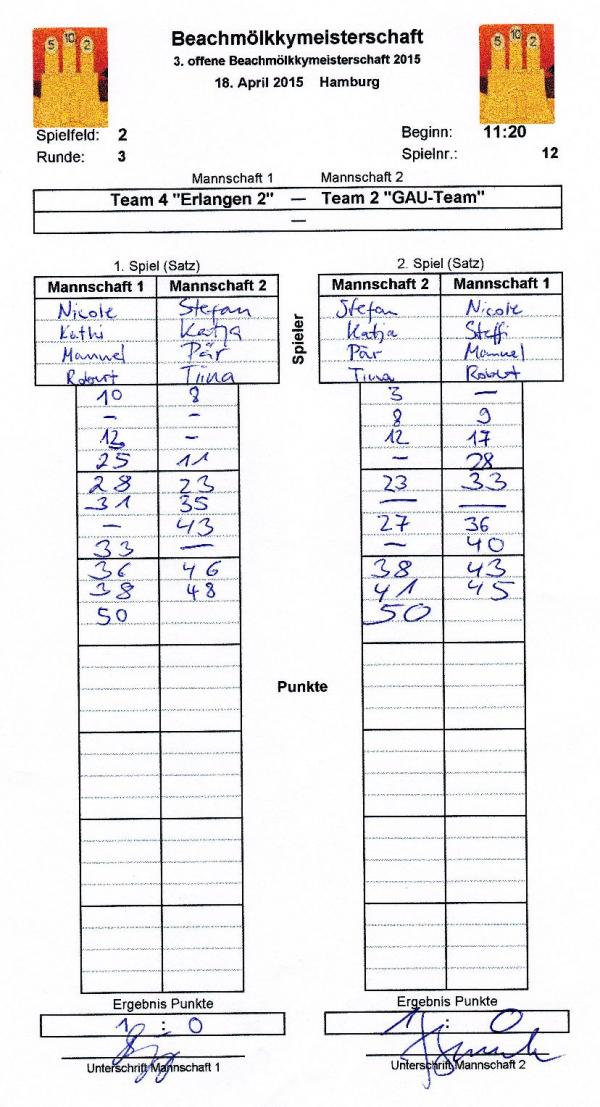 5 10 2
Beachmölkkymeisterschaft
5 10 2
3. offene Beachmölkkymeisterschaft 2015
18. April 2015 Hamburg
Spielfeld: 2 Beginn: 11:20
Runde: 3 Spielnr.: 12
Mannschaft 1 Mannschaft 2
Team 4 "Erlangen 2" — Team 2 "GAU-Team"
—
1. Spiel (Satz) 2. Spiel (Satz)
Mannschaft 1 Mannschaft 2 Mannschaft 2 Mannschaft 1
Nicole Stefan Stefan Nicole
Kathi Katja Katja Steffi
Manuel Pär Pär Manuel
Robert Tiina Tiina Robert
Spieler
10 8 3 –
– – 8 9
12 – 12 17
25 11 – 28
28 23 23 33
31 35 — —
– 43 27 36
33 — – 40
36 46 38 43
38 48 41 45
50 50
Punkte
Ergebnis Punkte Ergebnis Punkte
1 : 0 1 : 0
Unterschrift Mannschaft 1 Unterschrift Mannschaft 2